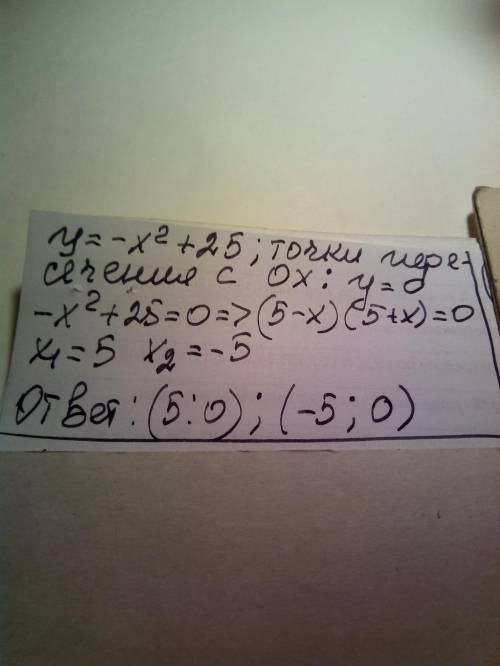 y=-x²+25; точки пере-
сечения с Ox: y=0
-x²+25=0=>(5-x)(5+x)=0
x₁=5 x₂=-5
Ответ: (5:0); (-5; 0)